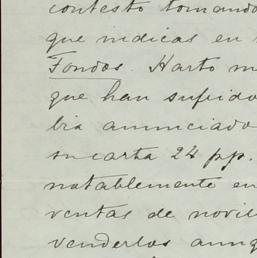 contesto tomando
que indicas en
Fondos. Harto m
que han sufrido
bia anunciado
su carta 24 pp.
notablemente en
ventas de novil
venderlos aunq